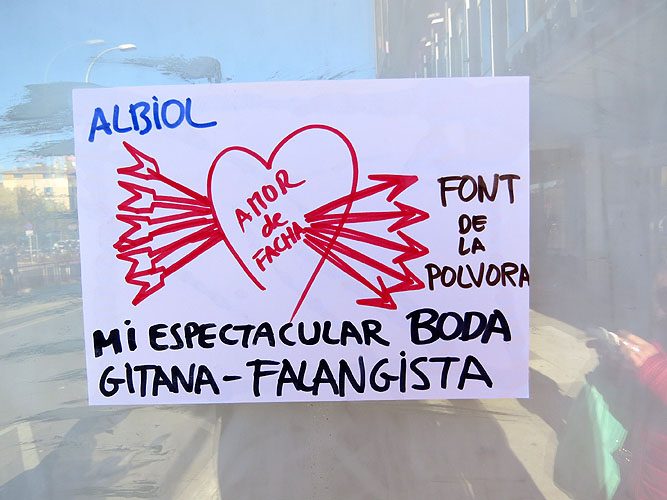 ALBIOL
AMOR
de
FACHA
FONT
DE
LA
POLVORA
Mi ESPECTACULAR BODA
GITANA-FALANGISTA